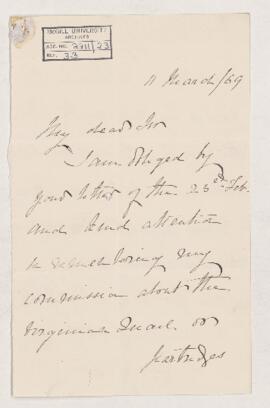 McGILL UNIVERSITY
ARCHIVES
ACC. NO. 2211/23
REF. 33
11 March/69
My dear Sir
I am obliged by
your letter of the 23rd Feb.
and kind attention
in remembering my
commission about the
Virginian Quail or
partridges